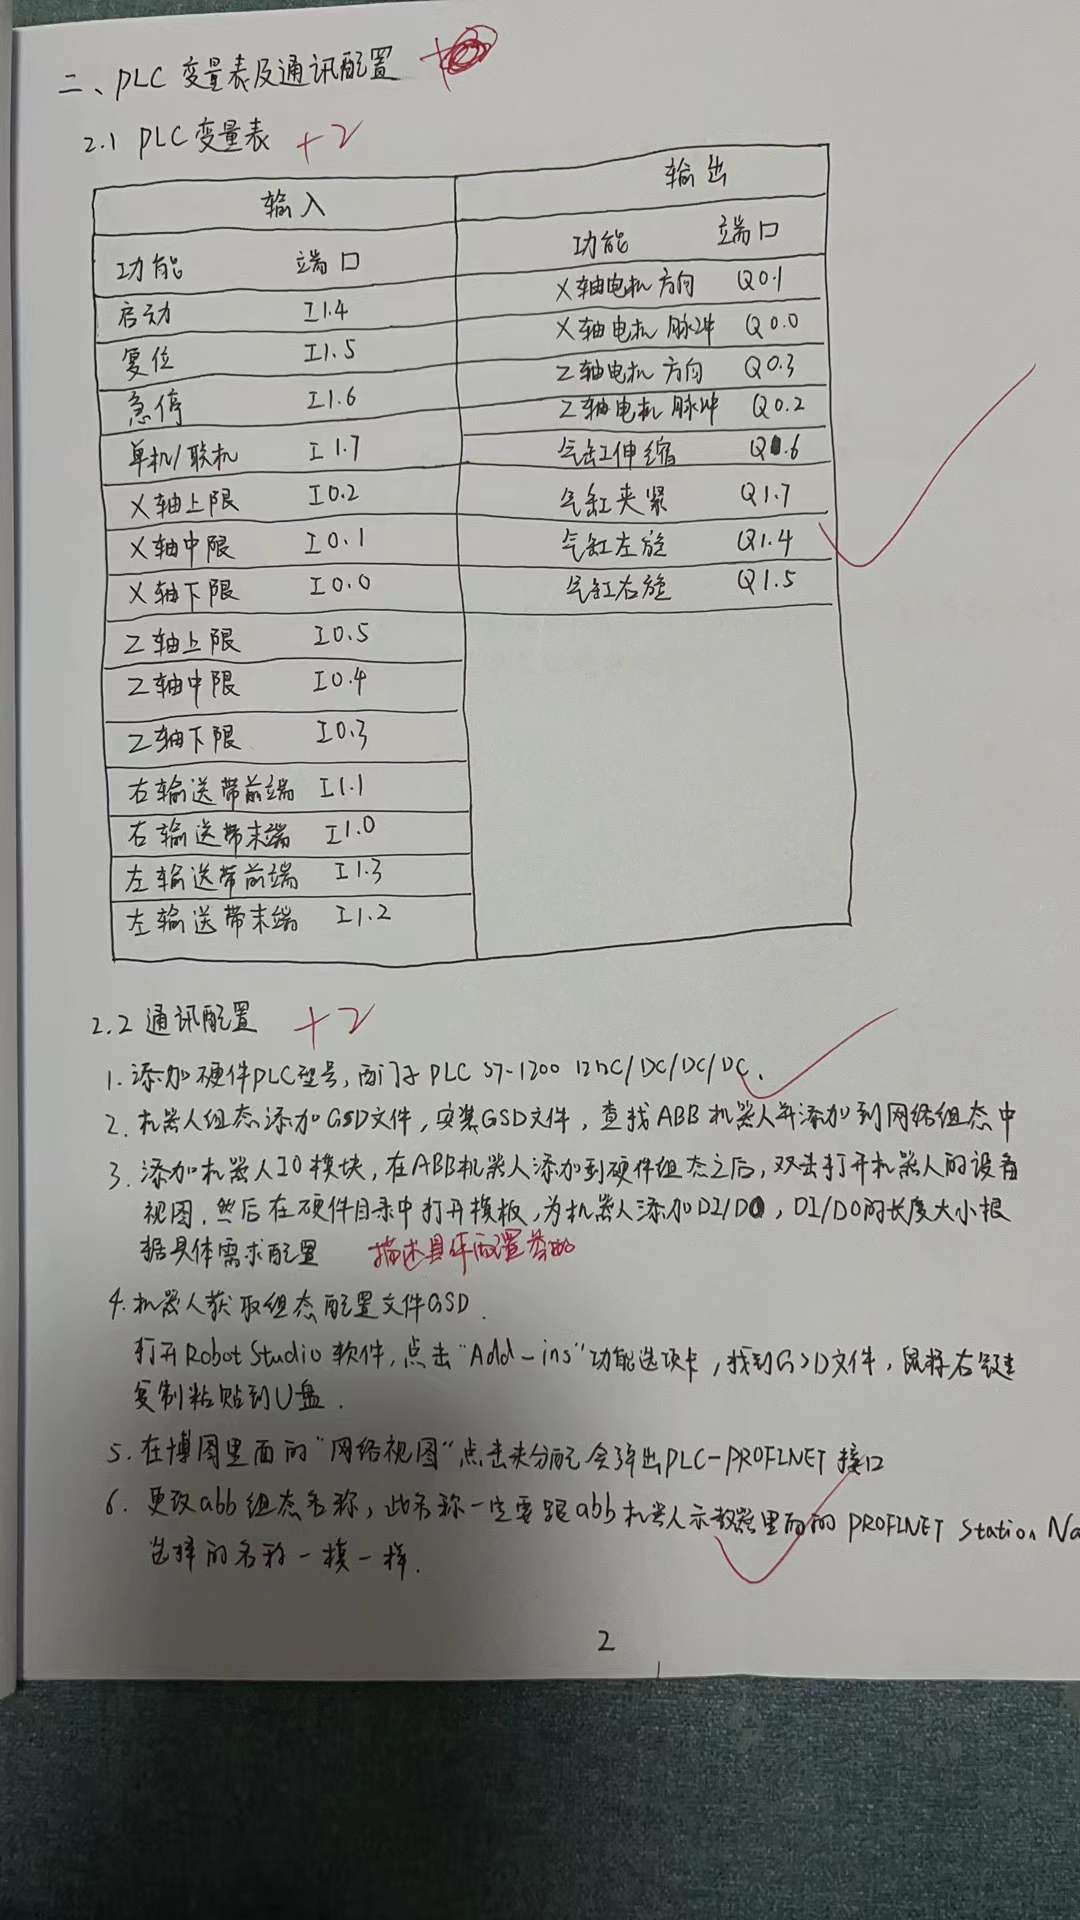 二、PLC 变量表及通讯配置
2.1 PLC变量表 +2
输入 输出
功能 端口 功能 端口
启动 I1.4 X轴电机方向 Q0.1
复位 I1.5 X轴电机脉冲 Q0.0
急停 I1.6 Z轴电机方向 Q0.3
单机/联机 I1.7 Z轴电机脉冲 Q0.2
X轴上限 I0.2 气缸伸缩 Q .6
X轴中限 I0.1 气缸夹紧 Q1.7
X轴下限 I0.0 气缸左旋 Q1.4
Z轴上限 I0.5 气缸右旋 Q1.5
Z轴中限 I0.4
Z轴下限 I0.3
右输送带前端 I1.1
右输送带末端 I1.0
左输送带前端 I1.3
左输送带末端 I1.2
2.2 通讯配置 +2
1. 添加硬件PLC型号,西门子PLC S7-1200 DC/DC/DC.
2. 机器人组态添加GSD文件,安装GSD文件,查找ABB机器人并添加到网络组态中
3. 添加机器人IO模块,在ABB机器人添加到硬件组态之后,双击打开机器人的设备
视图.然后在硬件目录中打开模板,为机器人添加DI/DO,DI/DO的长度大小根
据具体需求配置 描述具体配置
4. 机器人获取组态配置文件GSD.
打开RobotStudio软件,点击“Add-ins”功能选项卡,找到GSD文件,鼠标右键
复制粘贴到U盘.
5. 在博图里面的“网络视图”点击未分配会弹出PLC-PROFINET接口
6. 更改abb组态名称,此名称一定要跟abb机器人示教器里面的PROFINET Station Na
选择的名称一模一样.
2